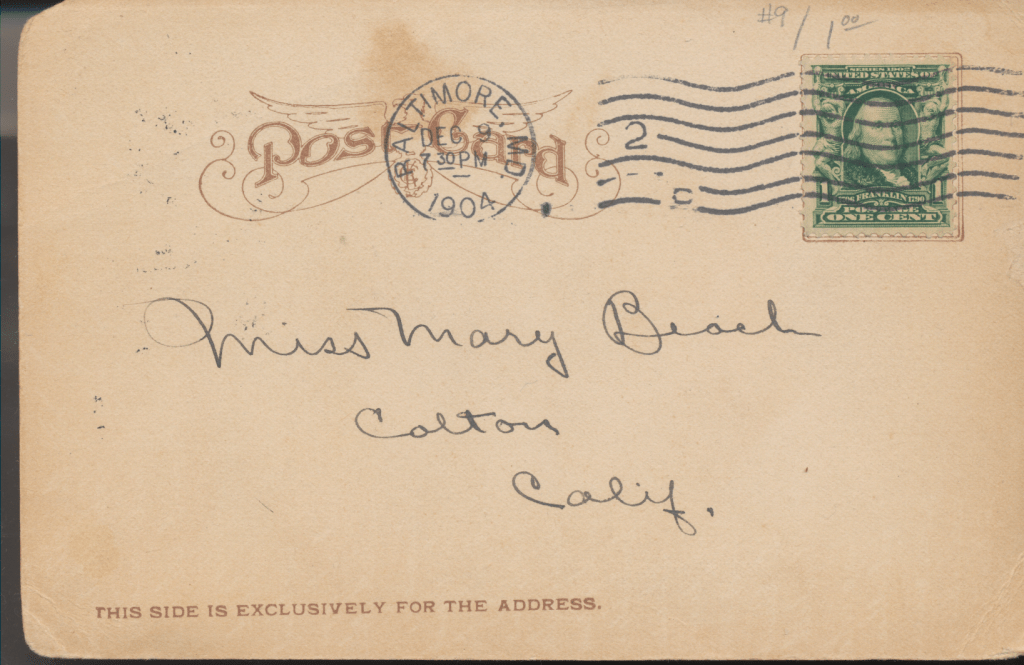 #9/1.00
Post Card
BALTIMORE, MD.
DEC 9
7 30 PM
1904
2
C
SERIES 1902
UNITED STATES OF
AMERICA
1 1
1706 FRANKLIN 1790
POSTAGE
ONE CENT
Miss Mary Beach
Colton
Calif.
THIS SIDE IS EXCLUSIVELY FOR THE ADDRESS.